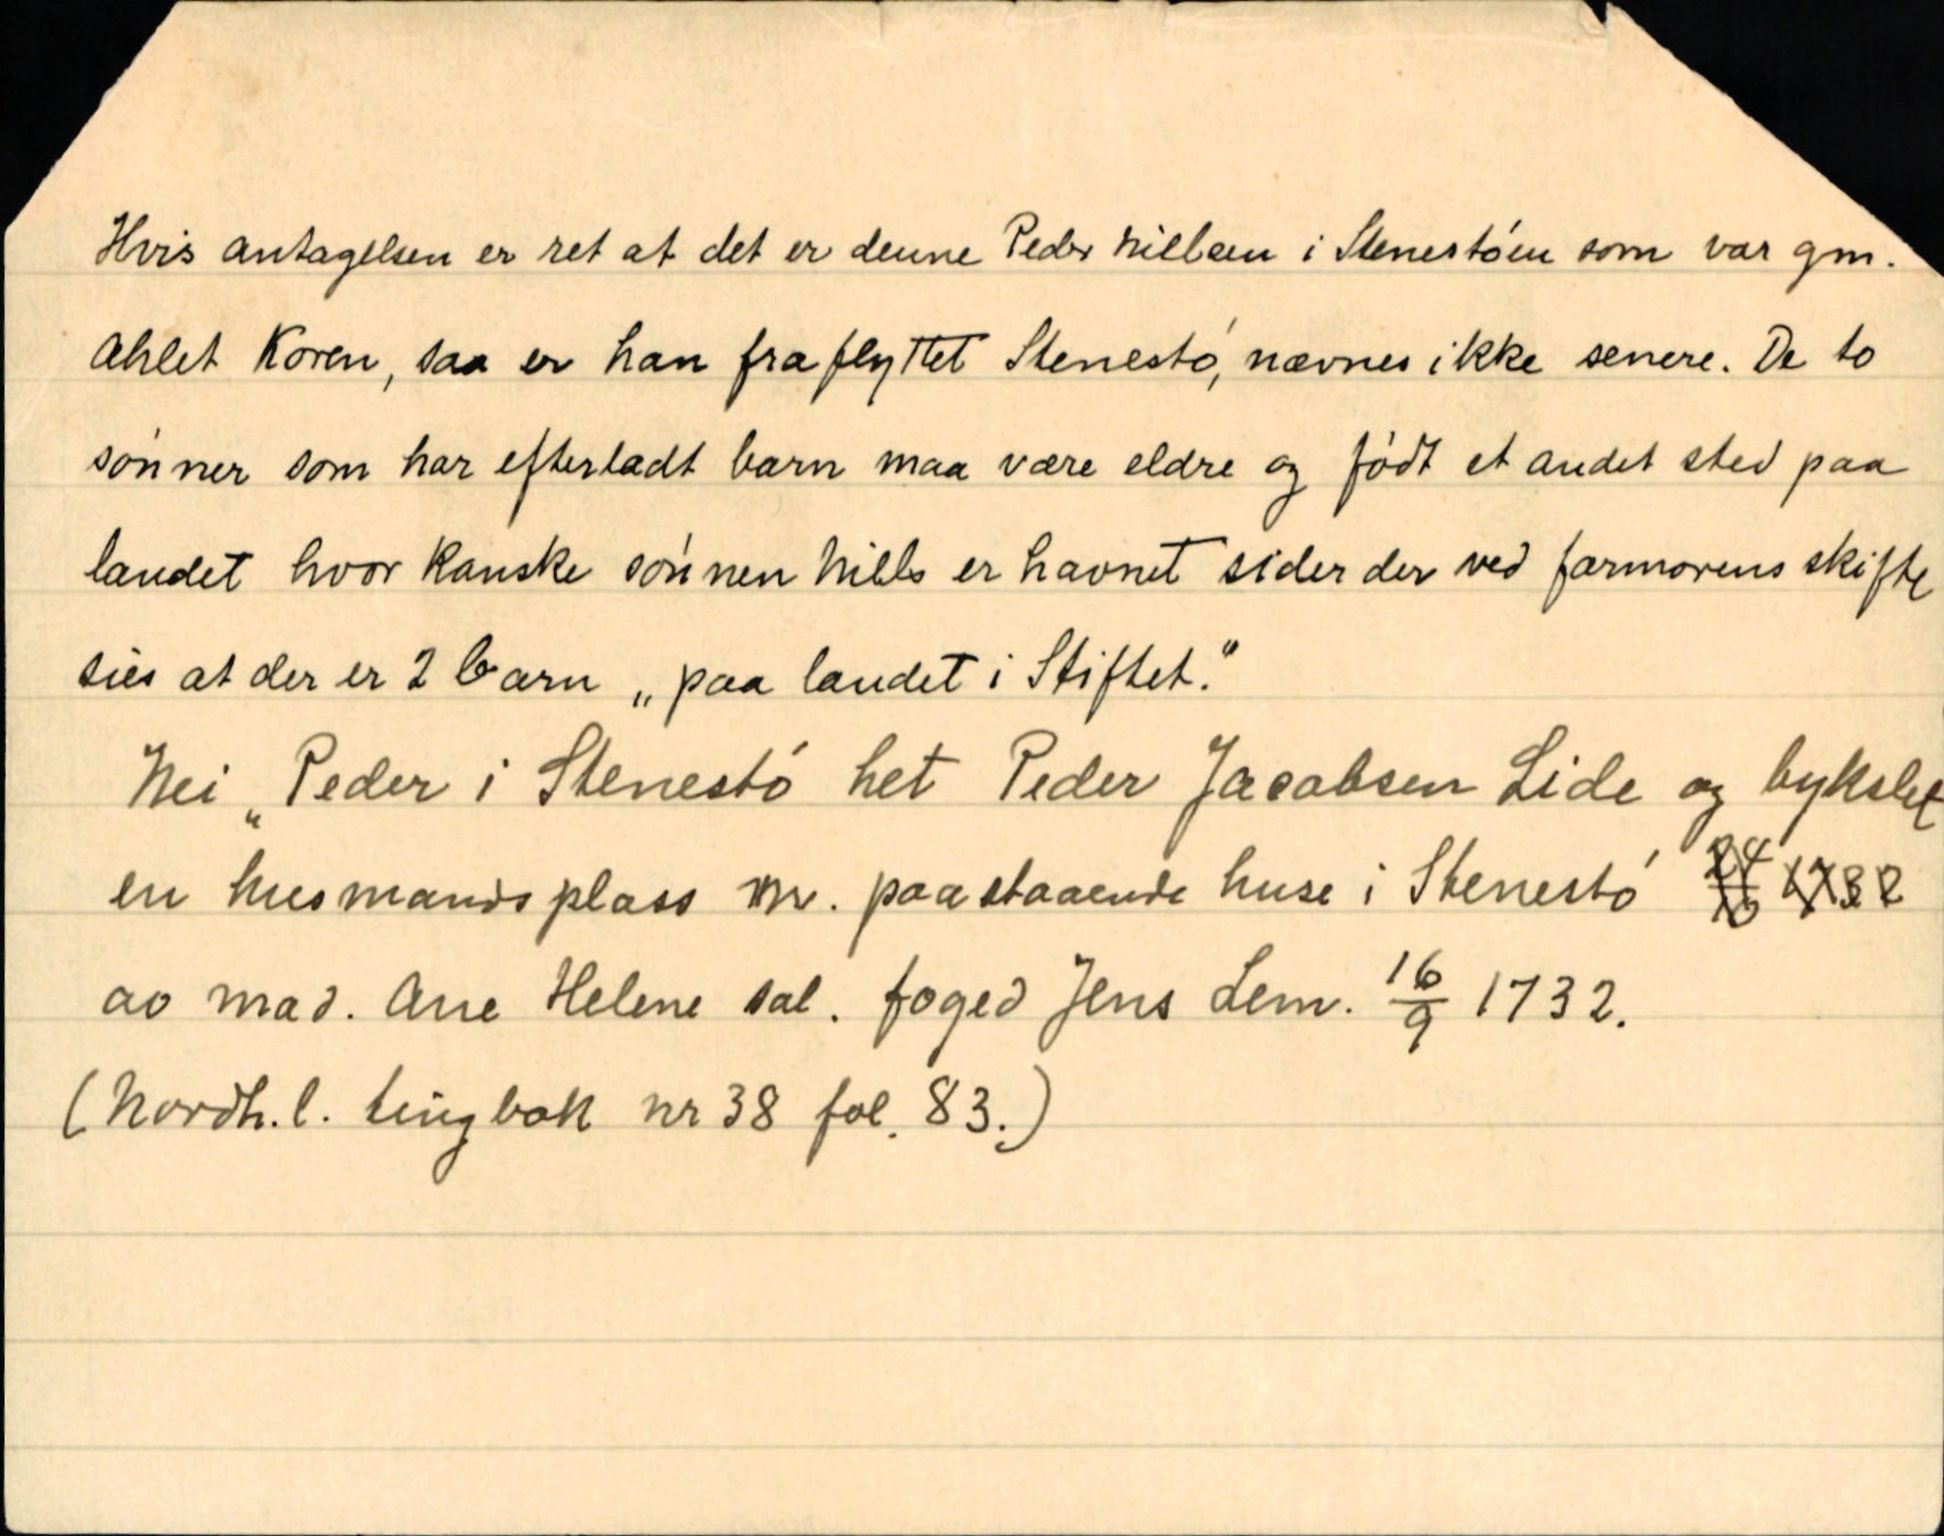 Hvis antagelsen er ret at det er denne Peder Nillsen i Stenestöen som var gm.
Ahlet Koren, saa er han fraflyttet Stenestö, nævnes ikke senere. De to
sönner som har efterladt barn maa være eldre og födt et andet sted paa
landet hvor kanske sönnen Nills er havnet siden der ved farmorens skifte
sies at der er 2 barn „paa landet i Stiftet."
Nei „Peder i Stenestö het Peder Jacobsen Lide og bykslet
en husmandsplass m. paastaaende huse i Stenestö 24/10 1732
av mad. Ane Helene sal. foged Jens Lem. 16/9 1732.
(Nordh.l. tingbok nr 38 fol. 83.)